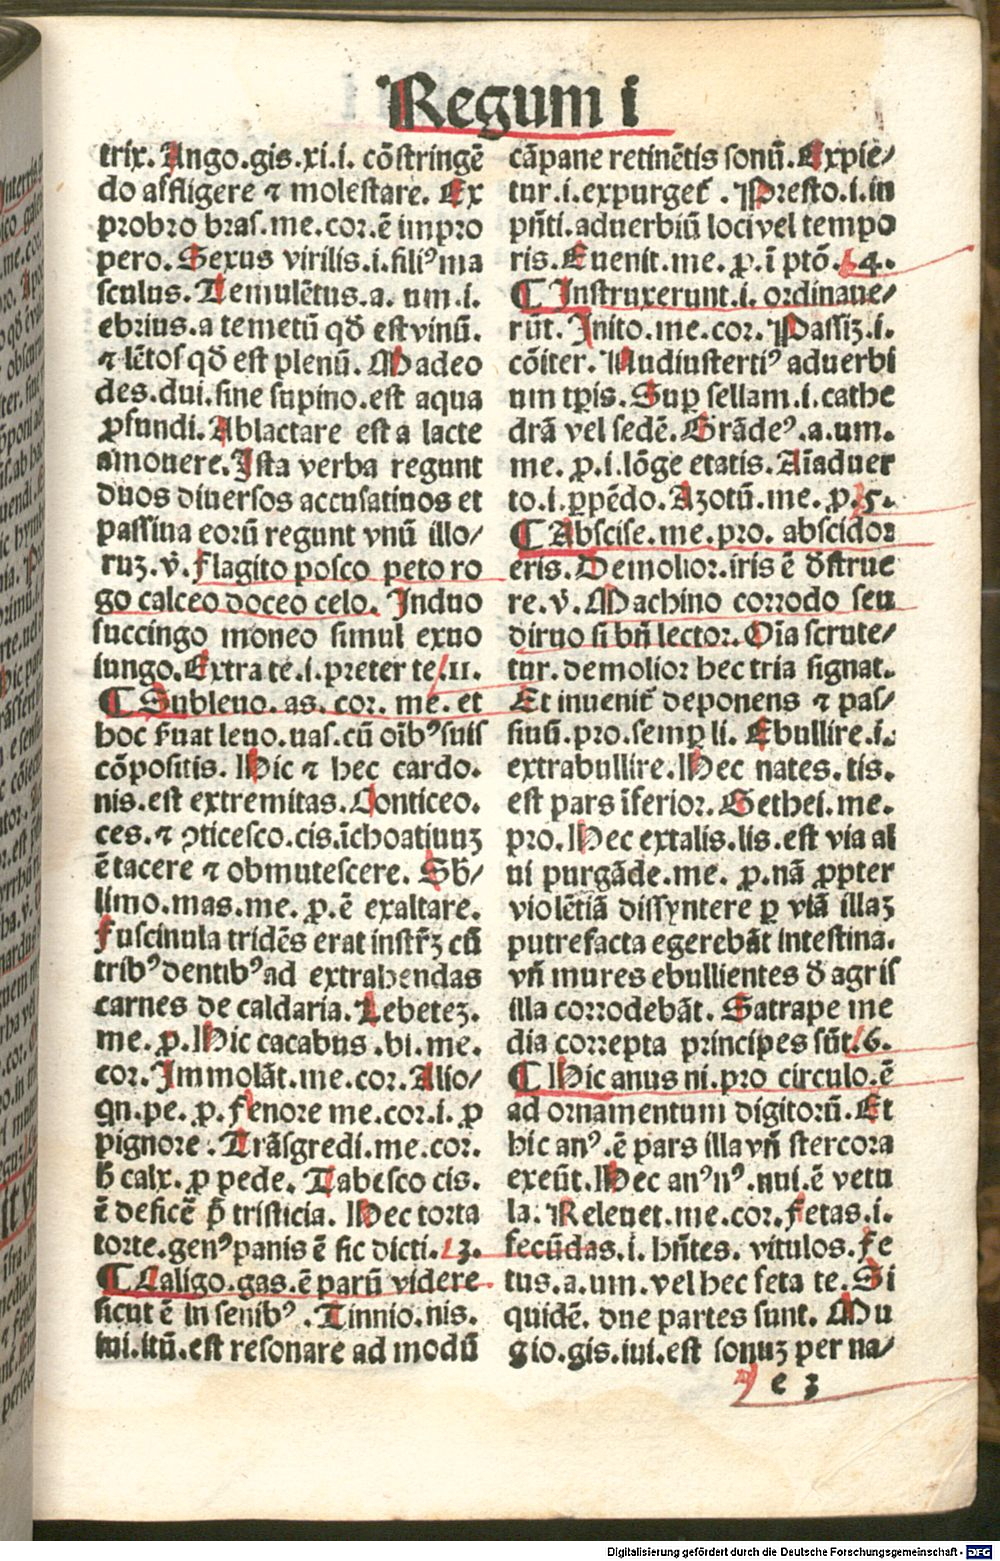 Regum i
trix. Ango.gis.xi.i. cõstringẽ
do affligere ⁊ molestare. Ex
probro bras.me.cor.ẽ impro
pero. Sexus virilis.i.filiꝰ ma
sculus. Temulẽtus.a. um.i.
ebrius.a temetũ qđ est vinũ.
⁊ lẽtos qđ est plenũ. Madeo
des.dui.sine supino.est aqua
ꝓfundi. Ablactare est a lacte
amouere. Ista verba regunt
duos diuersos accusatiuos et
passiua eorũ regunt vnũ illo/
ruꝫ.v̄. Flagito posco peto ro
go calceo doceo celo. Induo
succingo moneo simul exuo
iungo. Extra te.i.preter te.II.
¶ Subleuo. as. cor. me. et
hoc s̃uat leuo.uas.cũ oĩbꝰ suis
cõpositis. Hic ⁊ hec cardo.
nis.est extremitas. Conticeo.
ces.⁊ ꝯticesco.cis.ĩchoatiuuꝫ
ẽ tacere ⁊ obmutescere. Sb̃/
limo.mas.me. ꝓ.ẽ exaltare.
Fuscinula tridẽs erat instr̃ꝫ cũ
tribꝰ dentibꝰ ad extrahendas
carnes de caldaria. Lebeteꝫ.
me. ꝓ. Hic cacabus .bi.me.
cor. Immolãt.me.cor. Alio/
qn̄.pe. ꝓ. Fenore me.cor.i. ꝓ
pignore . Trãsgredi.me.cor.
h̃ calx. ꝓ pede. Tabesco cis.
ẽ deficẽ p̃ tristicia. Hec torta
torte.genꝰ panis ẽ sic dicti. 3.
¶ Caligo.gas.ẽ parũ videre
sicut ẽ in senibꝰ . Tinnio.nis.
iui.itũ.est resonare ad modũ
cãpane retinẽtis sonũ. Expie/
tur.i.expurget̃ . Presto.i.in
pñti.aduerbiũ loci vel tempo
ris. Euenit.me. ꝓ.ĩ ptõ. 4.
¶ Instruxerunt.i. ordinaue/
rũt. Inito.me.cor. Passiꝫ.i.
cõiter. Nudiustertiꝰ aduerbi
um tp̄is. Suꝑ sellam.i.cathe
drã vel sedẽ. Grãdeꝰ.a.um.
me. ꝓ.i.lõge etatis. Aĩaduer
to.i.ꝑpẽdo. Azotũ.me. ꝓ.5.
¶ Abscise.me.pro. abscidor
eris. Demolior.iris ẽ đstrue
re.v̄. Machino corrodo seu
diruo si bñ lector. Oĩa scrute/
tur. demolior hec tria signat.
Et inuenit̃ deponens ⁊ pas/
siuũ.pro.semꝑ li. Ebullire.i.
extrabullire. Hec nates.tis.
est pars ĩferior. Gethei.me.
pro. Hec extalis.lis.est via al
ui purgãde.me. ꝓ.nã ꝓpter
violẽtiã dissyntere ꝑ viã illaꝫ
putrefacta egerebãt intestina.
vñ mures ebullientes đ agris
illa corrodebãt. Satrape me
dia correpta principes sũt. 6.
¶ Hic anus ni.pro circulo.ẽ
ad ornamentum digitorũ. Et
hic anꝰ.ẽ pars illa vñ stercora
exeũt. Hec anꝰ nꝰ.nui.ẽ vetu
la. Releuet.me.cor. Fetas.i.
fecũdas.i. hñtes. vitulos. Fe
tus.a.um.vel hec feta te. Si
quidẽ. due partes sunt. Mu
gio.gis.iui.est sonuꝫ per na/
e 3
Digitalisierung gefördert durch die Deutsche Forschungsgemeinschaft - DFG